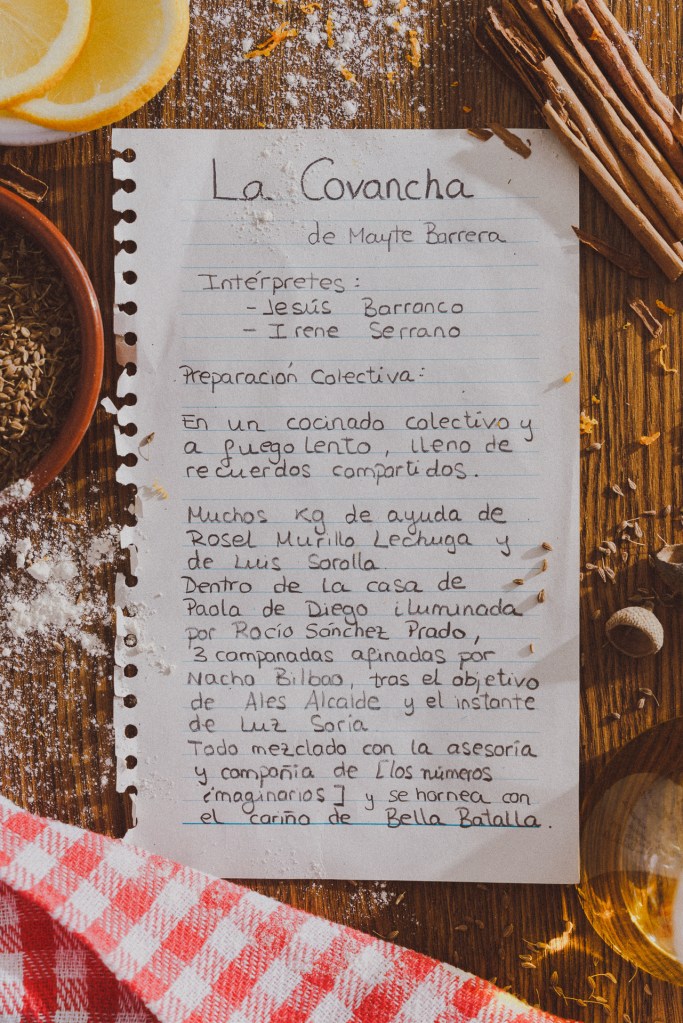 La Covancha
de Mayte Barrera
Intérpretes:
- Jesús Barranco
- Irene Serrano
Preparación Colectiva:
En un cocinado colectivo y
a fuego lento, lleno de
recuerdos compartidos.
Muchos Kg de ayuda de
Rosel Murillo Lechuga y
de Luis Sorolla
Dentro de la casa de
Paola de Diego iluminada
por Rocío Sánchez Prado,
3 campanadas afinadas por
Nacho Bilbao, tras el objetivo
de Ales Alcalde y el instante
de Luz Soria
Todo mezclado con la asesoría
y compañia de [los números
imaginarios] y se hornea con
el cariño de Bella Batalla.